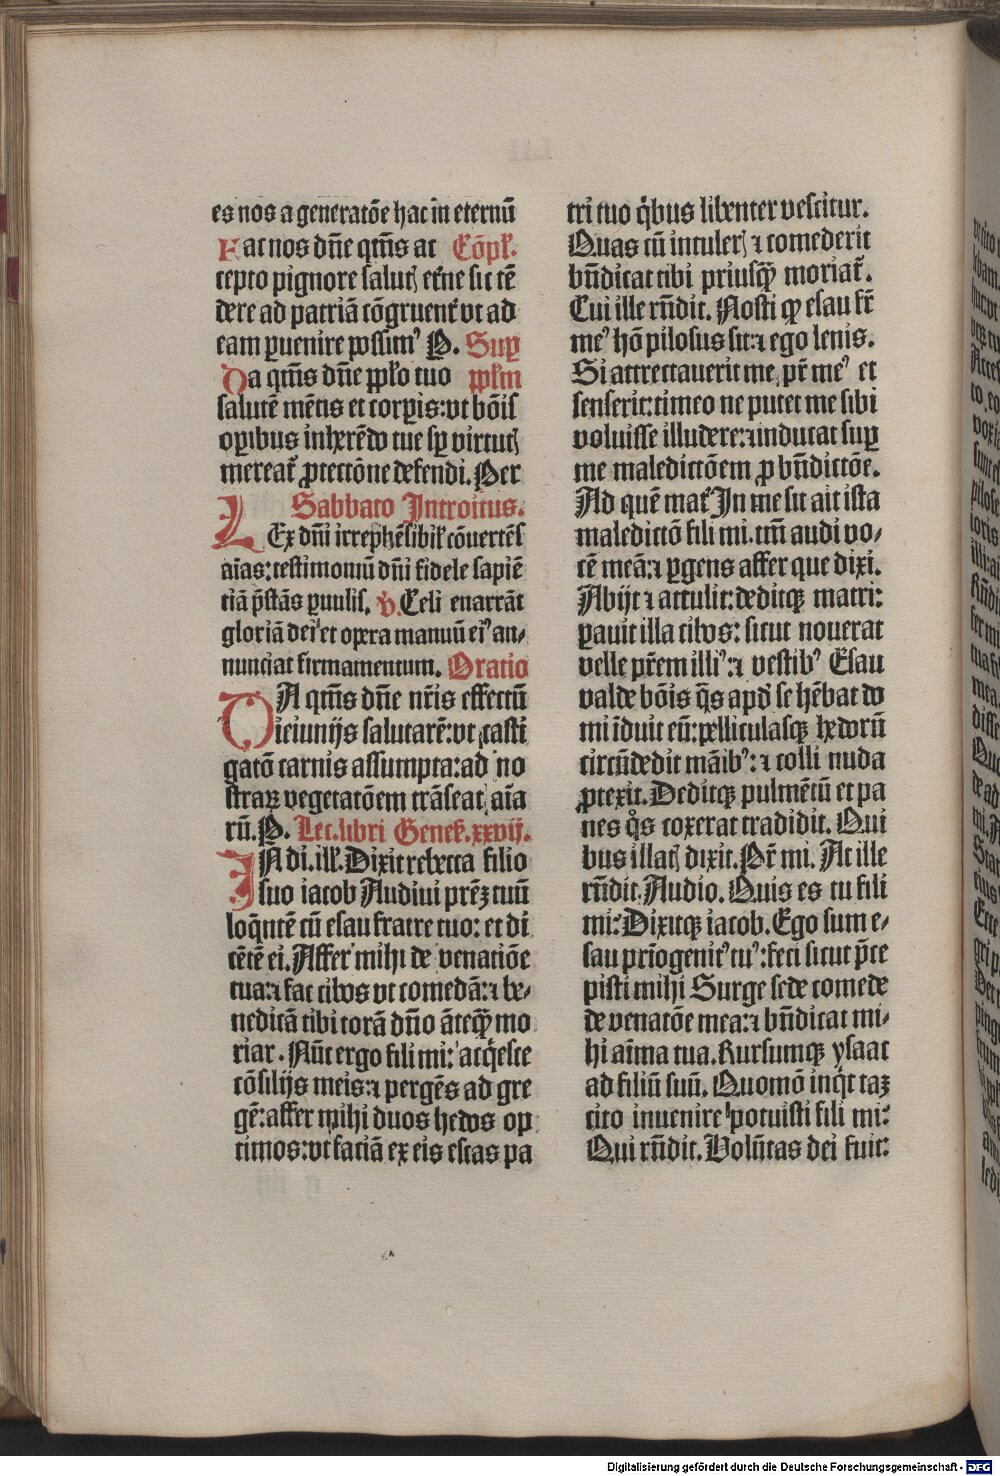 es nos a generatōe hac in eternū
Fac nos dn̄e qm̄s ac Cōpł.
cepto pignore salutꝭ et̄ne sic tē
dere ad patriā cōgruent᷑ vt ad
eam ꝑuenire possimꝰ P. Suꝑ
Da qm̄s dn̄e ppło tuo ppłm
salutē mētis et corꝑis: vt bōis
oꝑibus inherēdo tue sꝑ virtutꝭ
mereat᷑ ꝓtectōne defendi. Per
Sabbato Introitus.
LEx dn̄i irrephēsibił cōuertēs
aīas: testimoniū dn̄i fidele sapiē
tiā p̄stās ꝑuulis. v̇. Celi enarrāt
gloriā dei et opera manuū eiꝰ an⸗
nunciat firmamentum. Oratio
DA qm̄s dn̄e nr̄is effectū
ieiunijs salutarē: vt casti
gatō carnis assumpta: ad no
straꝝ vegetatōem trāseat aīa
rū. P. Lec. libri Geneł. xxvij.
IN di. ilł. Dixit rebecca filio
suo iacob Audiui prēꝫ tuū
loq̄ntē cū esau fratre tuo: et di
cētē ei. Affer mihi de venatiōe
tua: ⁊ fac cibos vt comedā: ⁊ be⸗
nedicā tibi corā dn̄o āteqꝙ̄ mo
riar. Nūc ergo fili mi: acq̇esce
cōsilijs meis: ⁊ pergēs ad gre
gē: affer mihi duos hedos op
timos: vt faciā ex eis escas pa
tri tuo q̇bus libenter vescitur.
Quas cū intulerꝭ ⁊ comederit
bn̄dicat tibi priusꝙ̄ moriat᷑.
Cui ille rn̄dit. Nosti ꝙ esau fr̄
meꝰ hō pilosus sit: ⁊ ego lenis.
Si attrectauerit me pr̄ meꝰ et
senserit: timeo ne putet me sibi
voluisse illudere: ⁊ inducat suꝑ
me maledictōem ꝓ bn̄dictōe.
Ad quē mat᷑ In me sit ait ista
maledictō fili mi. tm̄ audi vo⸗
cē meā: ⁊ ꝑgens affer que dixi.
Abijt ⁊ attulit: deditqꝫ matri:
ꝑauit illa cibos: sicut nouerat
velle pr̄em illiꝰ: ⁊ vestibꝰ Esau
valde bōis q̄s apđ se hēbat do
mi īduit eū: pelliculasqꝫ hedorū
circūdedit māibꝰ: ⁊ colli nuda
ꝓtexit. Deditqꝫ pulmētū et pa
nes q̊s coxerat tradidit. Qui
bus illatꝭ dixit. Pr̄ mi. At ille
rn̄dit. Audio. Quis es tu fili
mi: Dixitqꝫ iacob. Ego sum e⸗
sau prīogenitꝰ tuꝰ: feci sicut p̄ce
pisti mihi Surge sede comede
de venatōe mea: ⁊ bn̄dicat mi⸗
hi aīma tua. Rursumqꝫ ysaac
ad filiū suū. Quomō inq̇t taꝫ
cito inuenire potuisti fili mi:
Qui rn̄dit. Volūtas dei fuit:
Digitalisierung gefördert durch die Deutsche Forschungsgemeinschaft - DFG